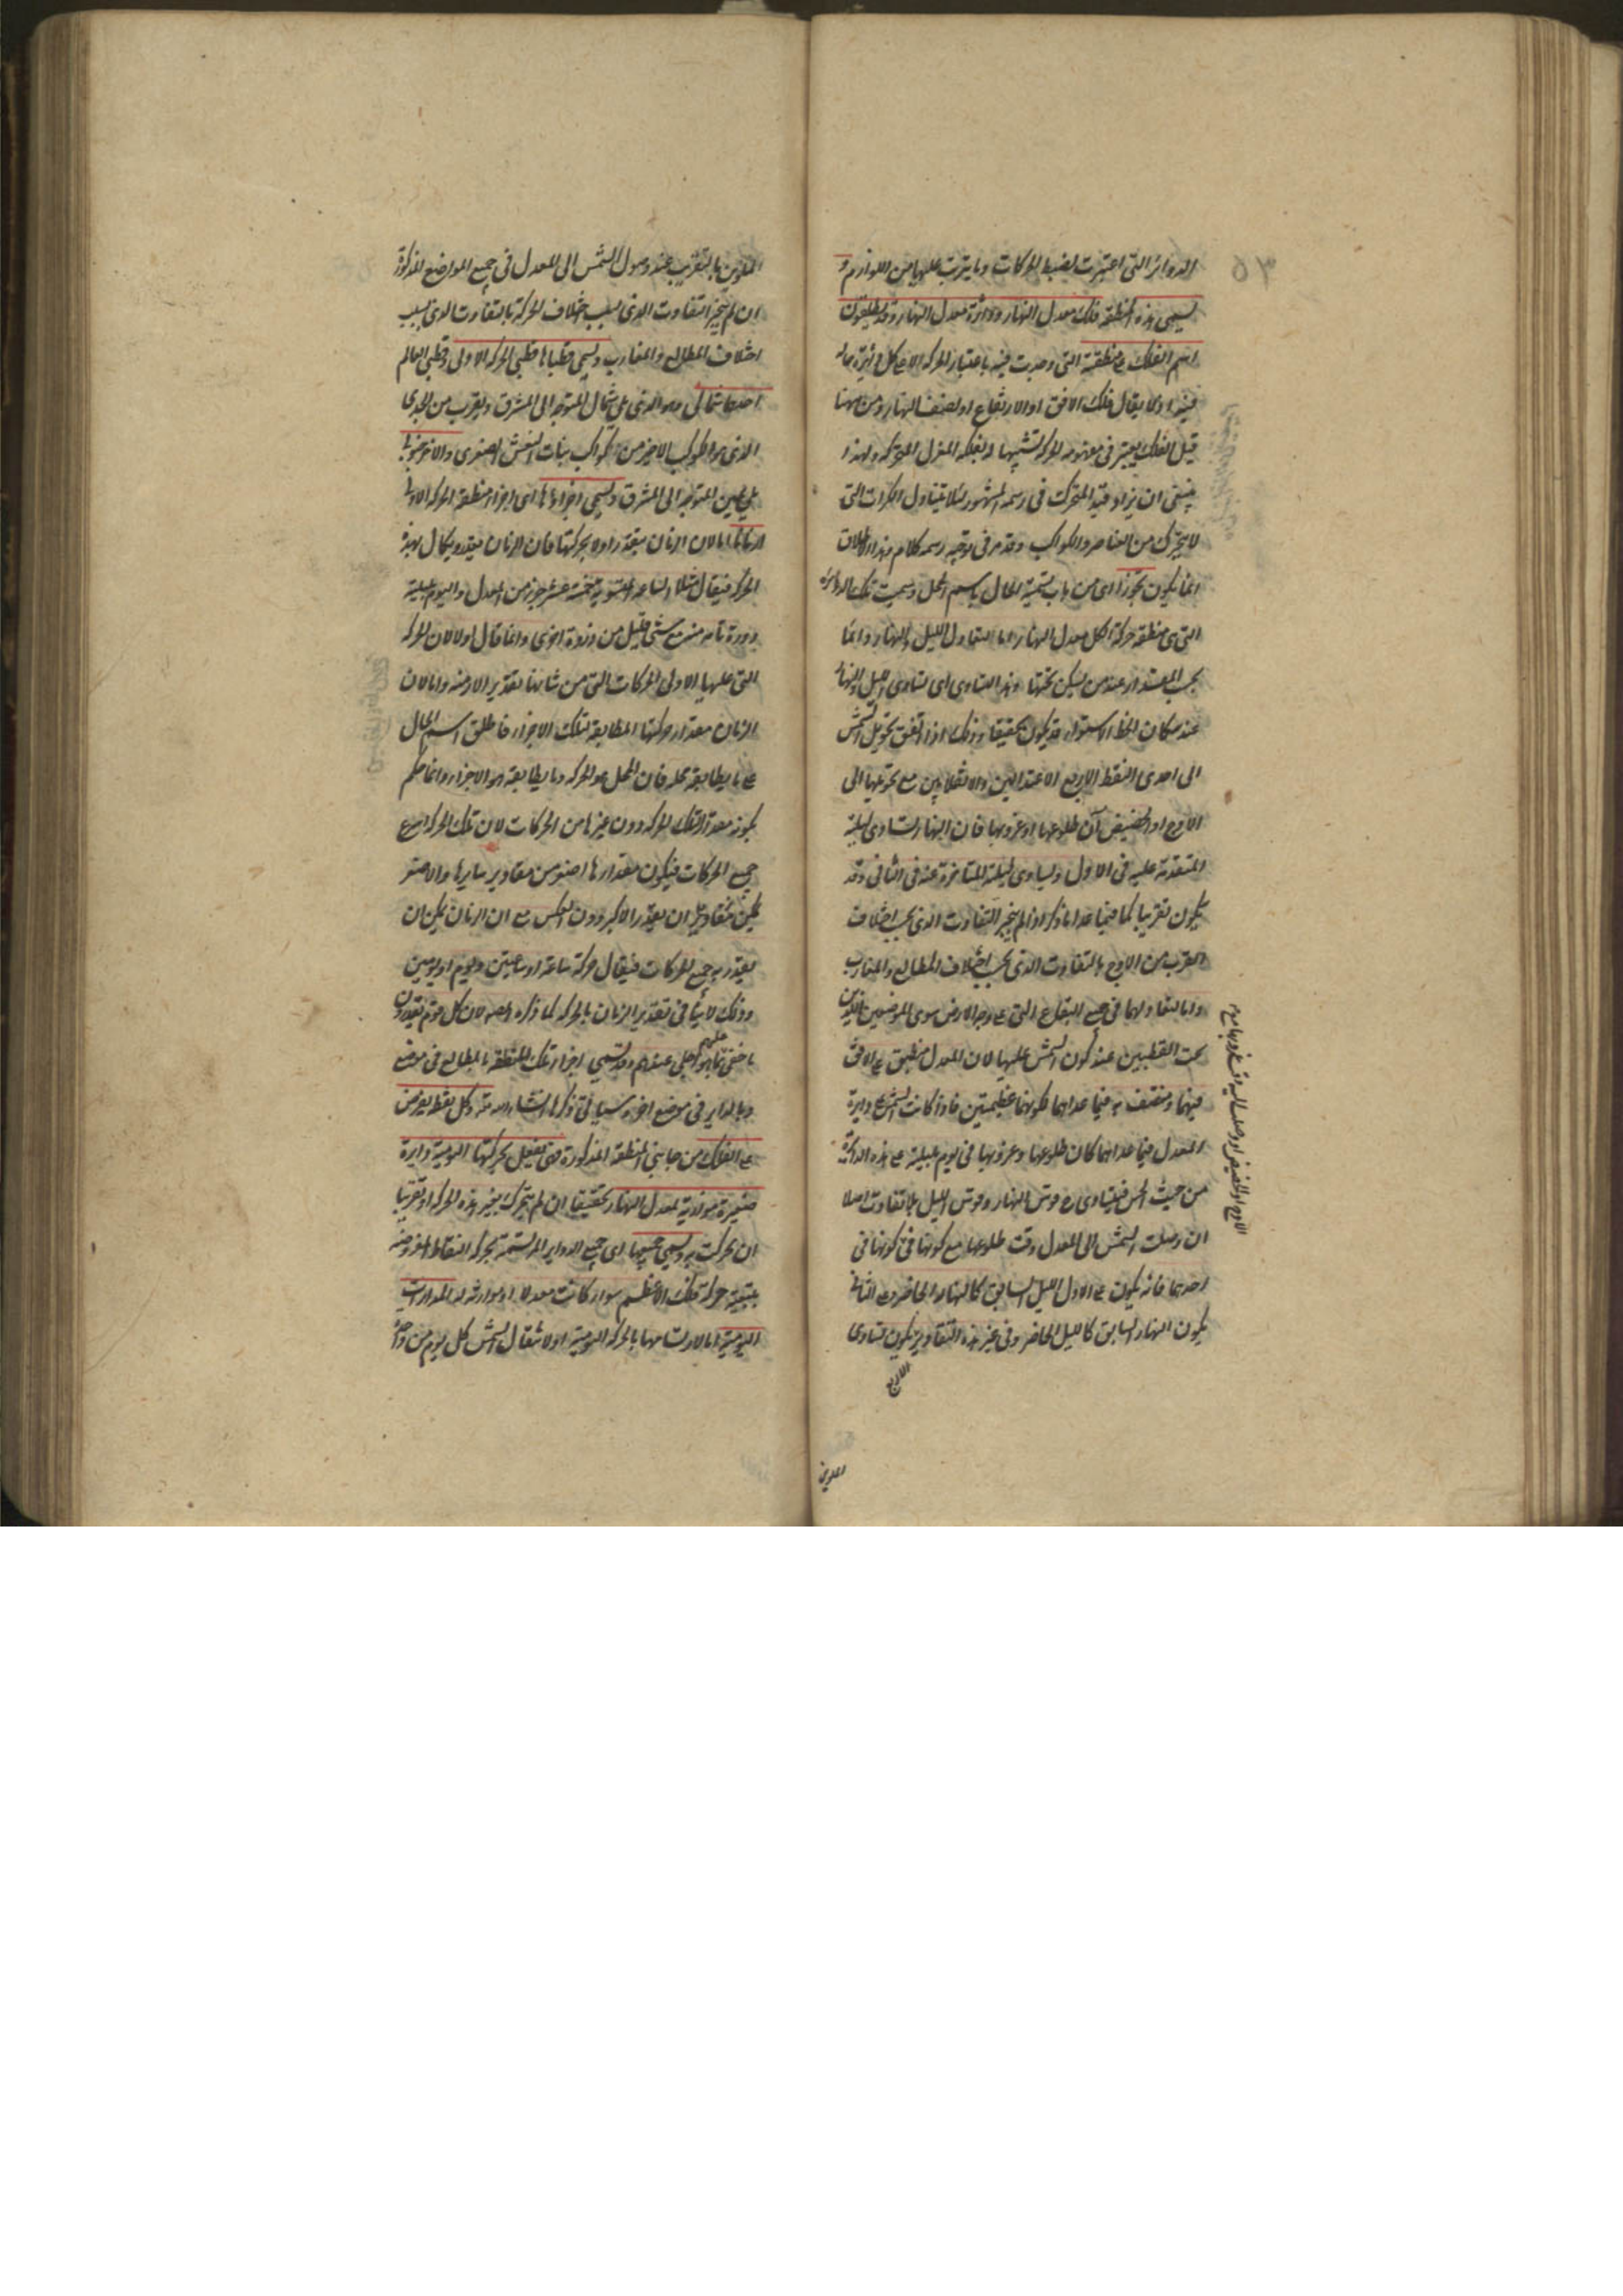 الدوائر التى اعتبرت لضبط الحركات وما يترتب عليها من اللوازم و
يسمى هذه المنطقة فلك معدل النهار ودائرة معدل النهار وقد يطلقون
اسم الفلك على منطقة التى وجدت فيه باعتبار الحركة
فيه اولا يقال فلك الافق او الارتفاع او نصف النهار ومن ههنا
قيل الفلك يعتبر فى مفهومه الحركة تشبيها له بفلكة المغزل المتحركة ولهذا
ينبغى ان يزاد قيد المتحرك فى رسمه المشهور لئلا يتناول الكرات التى
لا يتحرك من العناصر والكواكب وقد مر فى توجيه رسمه كلام وهذا الاطلاق
انما يكون تجوزا اى من باب تسمية الحال باسم المحل وسميت تلك الدائرة
التى هى منطقة حركة الكل معدل النهار اما لتعادل الليل والنهار دائما
بحسب المقدار عند من يسكن تحتها وهذا التساوى اى تساوى الليل والنهار
عند سكان الخط الاستواء قد يكون تحقيقا وذلك اذا اتفق تحويل الشمس
الى احدى النقط الاربع الاعتدالين والانقلابين مع تحويلها الى
الاوج او الحضيض آن طلوعها او غروبها فان النهار يساوى ليلته
المتقدمة عليه فى الاول ويساوى ليلته المتاخرة عنه فى الثانى وقد
يكون تقريبا كما فيما عدا ما ذكر اذا لم يتجبر التفاوت الذى بحسب اختلاف
القرب من الاوج بالتفاوت الذى بحسب اختلاف المطالع والمغارب
واما لتعادلهما فى جميع البقاع التى على وجه الارض سوى الموضعين اللذين
تحت القطبين عند كون الشمس عليها لان المعدل منطبق على الافق
فيهما ومنتصف به فيما عداهما لكونهما عظيمتين فاذا كانت الشمس على دايرة
المعدل فيما عداهما كان طلوعها وغروبها فى يوم بليلته على هذه الدائرة
من حيث الحس فيتساوى ح قوس النهار وقوس الليل بلا تفاوت اصلا
ان وصلت الشمس الى المعدل وقت طلوعها مع كونها فى
احدهما فانه يكون على الاول الليل السابق كالنهار الحاضر وعلى الثانى
يكون النهار السابق كالليل الحاضر وفى غير هذه التقادير يكون تساوى
الاوج او الحضيض او وصلت اليه وقت غروبها مع
الملوين بالتقريب عند وصول الشمس الى المعدل فى جميع المواضع المذكورة
ان لم يتجبر التفاوت الذى بسبب اختلاف الحركة بالتفاوت الذى بسبب
اختلاف المطالع والمغارب ويسمى قطباها قطبى الحركة الاولى وقطبى العالم
احدهما شمالى وهو الذى على شمال المتوجه الى المشرق ويقرب من الجدى
الذى هو الكوكب الاخير من كواكب بنات النعش الصغرى والآخر جنوبى
على يمين المتوجه الى المشرق ويسمى اجزاؤها اى اجزاء منطقة الحركة الاولى
ازمانا اما لان الزمان مقدر اولا بحركتها فان الزمان مقدر يكال بهذه
الحركة فيقال مثلا الساعة المستوية خمسة عشر جزء من المعدل واليوم بليلته
دورة تامة منه مع شئ قليل من دورة اخرى وانما قال اولا لان الحركة
التى عليها الاولى الحركات التى من شانها تقدير الازمنة واما لان
الزمان مقدار حركتها المطابقة لتلك الاجزاء فاطلق اسم الحال
على ما يطابقه محله فان المحل هو الحركة وما يطابقه هو الاجزاء وانما حكم
بكونه مقدارا لتلك الحركة دون غيرها من الحركات لان تلك الحركة اسرع
جميع الحركات فيكون مقدارها اصغر من مقادير سايرها والاصغر
يمكن ان يقدر الاكبر دون العكس مع ان الزمان يمكن ان
يقدر به جميع الحركات فيقال حركة ساعة او ساعتين ويوم او يومين
وذلك لا ينافى تقدير الزمان بالحركة كما ذكره المصنف لان كل قوم يقدرون
ما خفى عليهم بما هو اجلى عندهم وقد تسمى اجزاء تلك المنطقة بالمطالع فى موضع
وبالداير فى موضع آخر وسياتى ذكرها انشاء الله تعالى وكل نقطة يفرض
على الفلك من جانبى المنطقة المذكورة فهى تفعل بحركتها اليومية دايرة
صغيرة موازية لمعدل النهار تحقيقا ان لم يتحرك بغير هذه الحركة او تقريبا
ان تحركت به ويسمى جميعها اى جميع الدواير المرتسمة بحركة النقاط المفروضة
بتبعية حركة فلك الاعظم سواء كانت معدلا او موازية له المدارات
اليومية اما لارتسامها بالحركة اليومية او لانتقال الشمس كل يوم من واحد